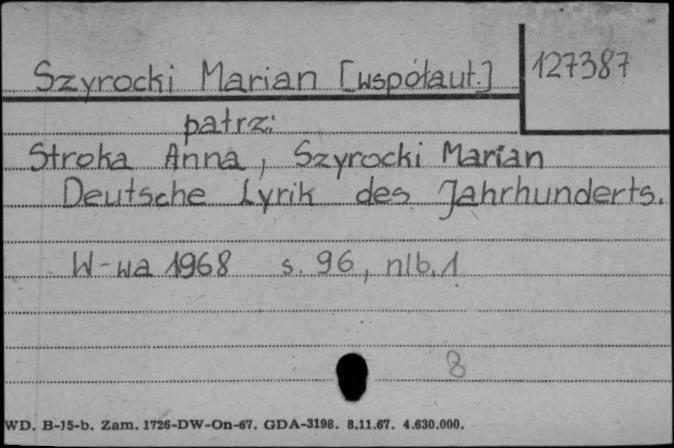 Szyrocki Marian [współaut.]
127387
patrz:
Stroka Anna, Szyrocki Marian
Deutsche Lyrik des Jahrhunderts.
W-wa 1968 s. 96, nlb. 1
8
WD. B-15-b. Zam. 1726-DW-On-67. GDA-3198. 8.11.67. 4.630.000.